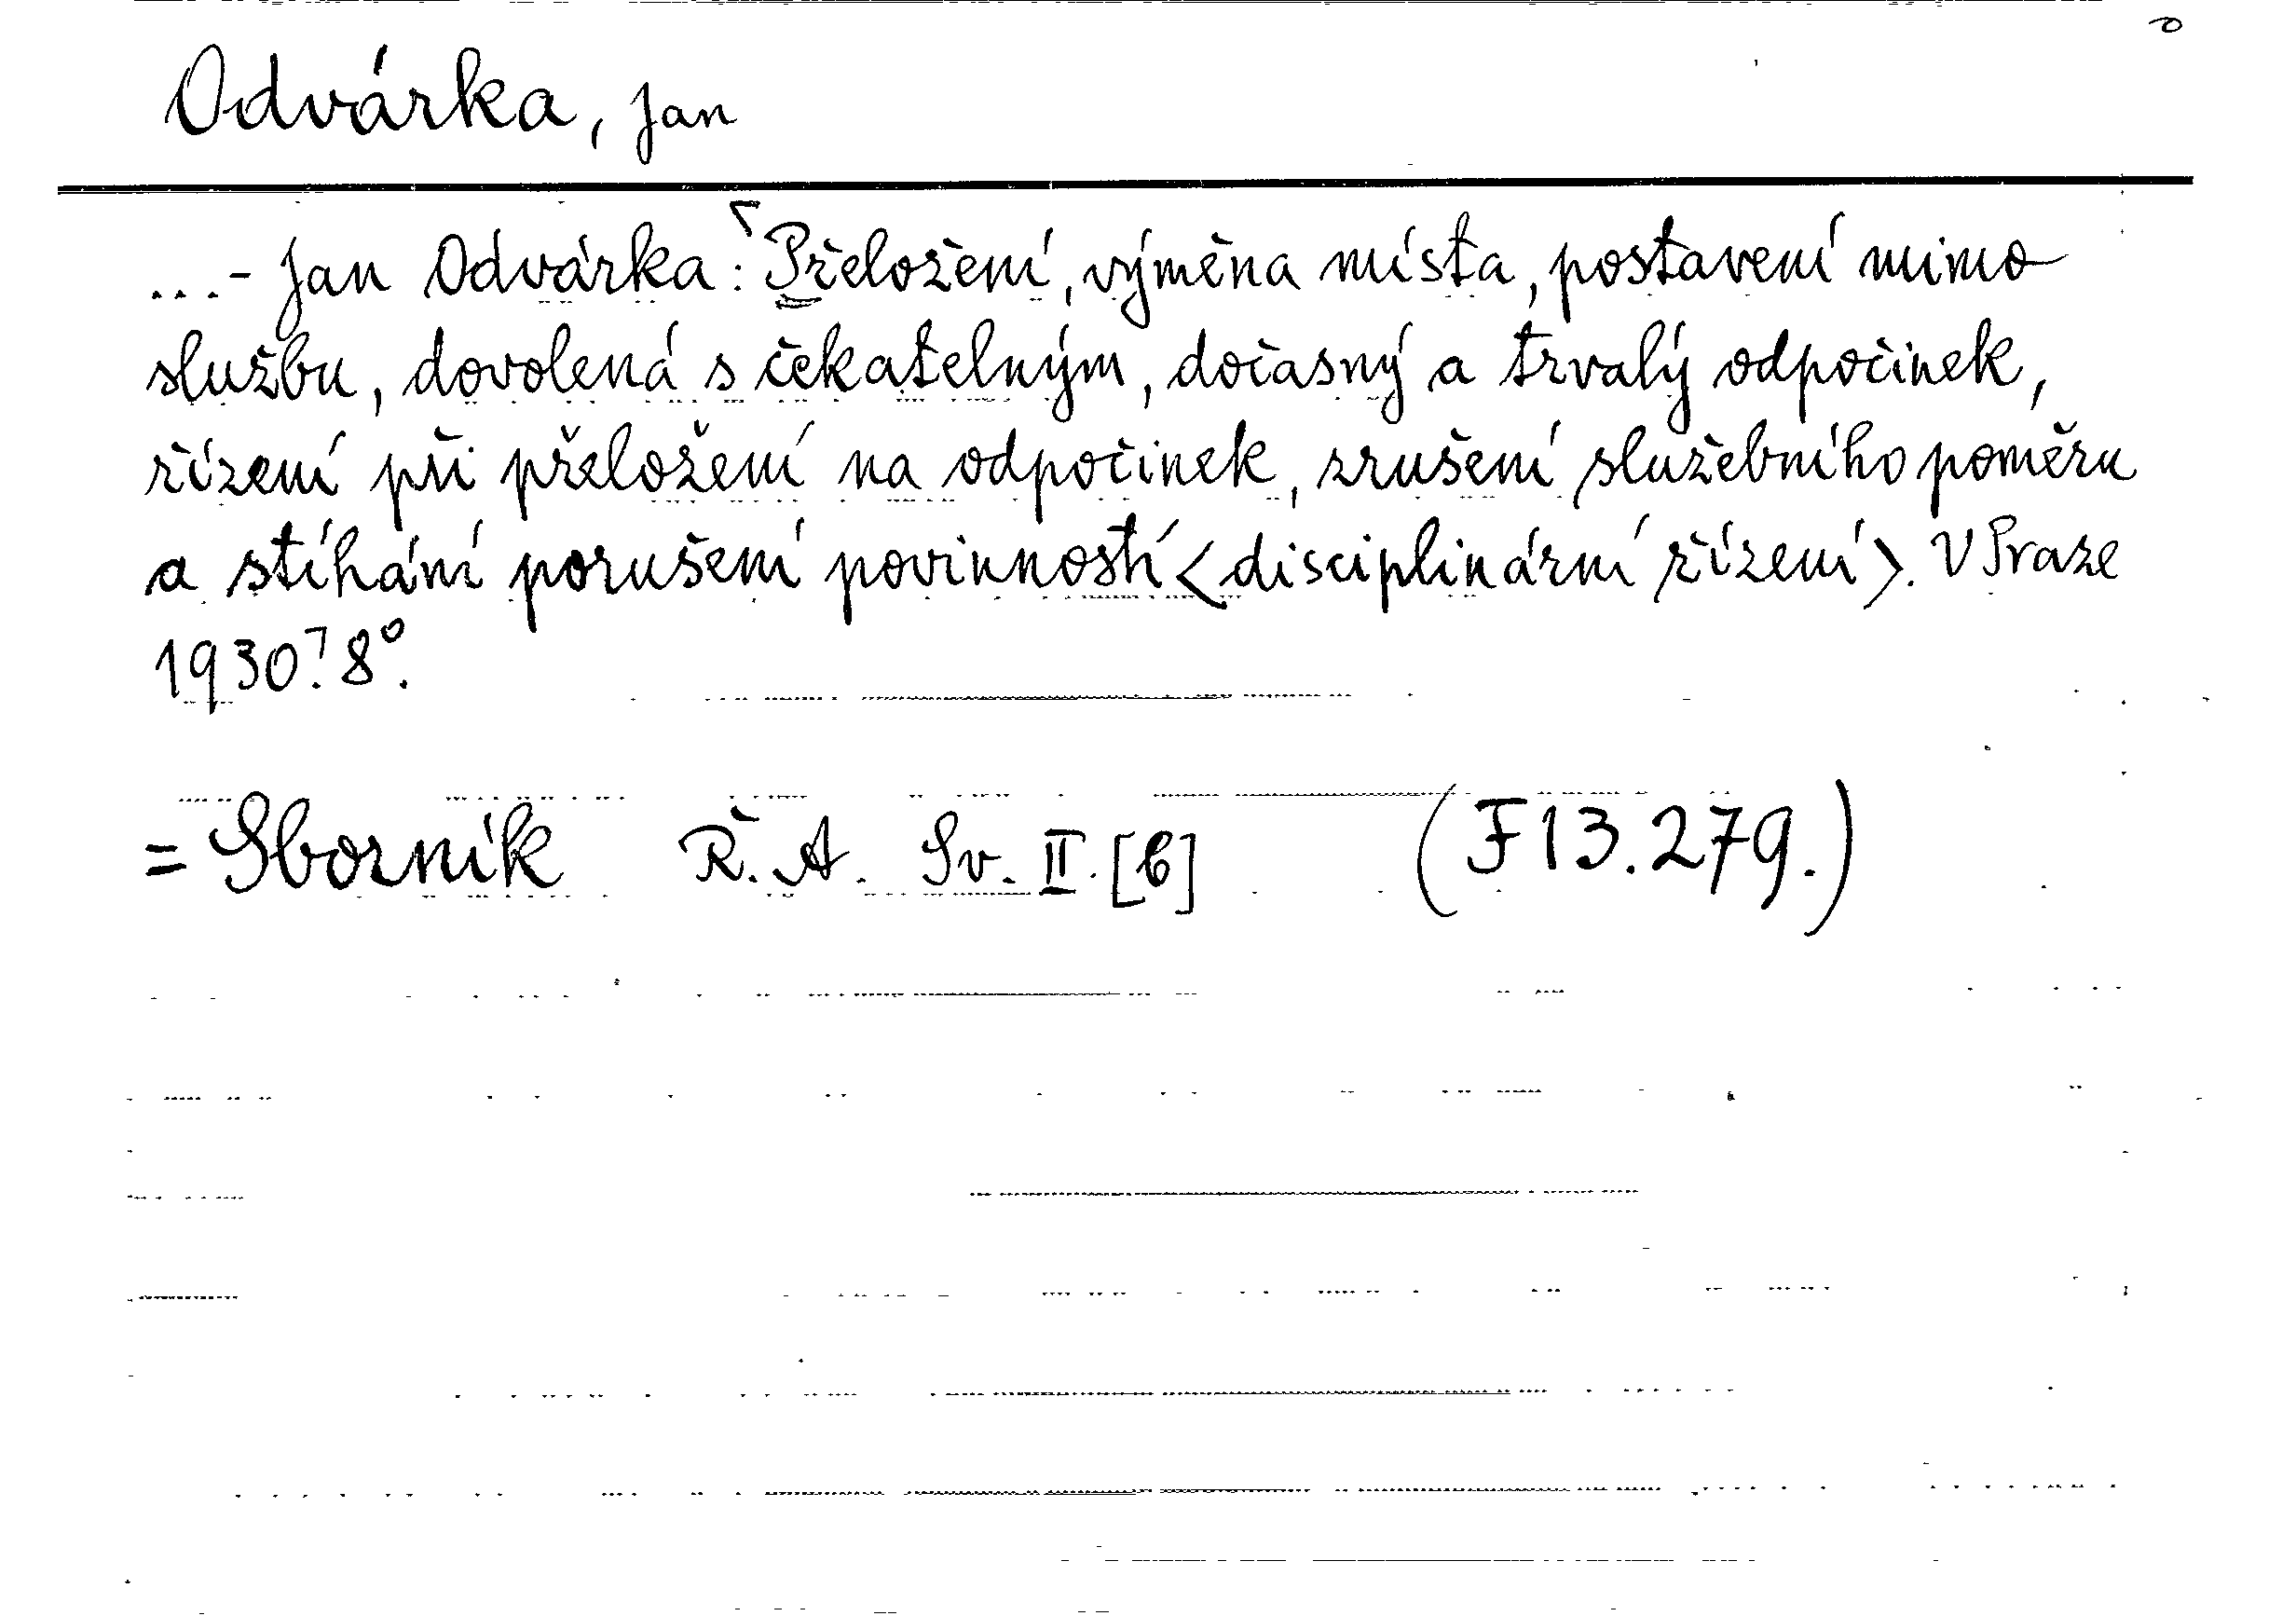 Odvárka, Jan
...- Jan Odvárka: ⌜Přeložení, výměna místa, postavení mimo
službu, dovolená s čekatelným, dočasný a trvalý odpočinek,
řízení při přeložení na odpočinek, zrušení služebního poměru
a stíhání porušení povinností <disciplinární řízení>. V Praze
1930⌝. 8°.
= Sborník Ř. A. Sv. II. [6] (F13.279.)